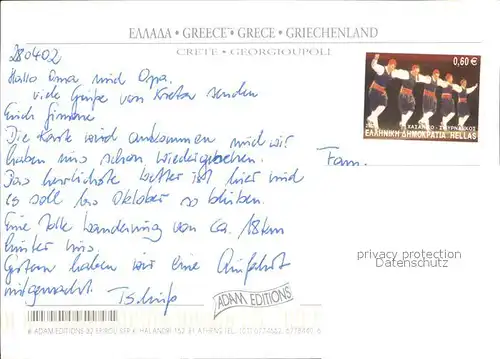 ΕΛΛΑΔΑ • GREECE • GRECE • GRIECHENLAND
CRETE • GEORGIOUPOLI
280402
Hallo Oma und Opa.
viele Grüße von Kreta senden
Euch Simone
Die Karte wird ankommen und wir
haben uns schon wiedergesehen.
Das herrlichste Wetter ist hier und
es soll bis Oktober so bleiben.
Eine tolle Wanderung von ca. 18 km
hinter uns.
Gestern haben wir eine
mitgemacht. Tschüß
0,60 €
ΧΑΣΑΠΙΚΟ - ΣΜΥΡΝΑΪΚΟΣ
ΕΛΛΗΝΙΚΗ ΔΗΜΟΚΡΑΤΙΑ HELLAS
Fam.
privacy protection
Datenschutz
ADAM EDITIONS
© ADAM EDITIONS-32 HALANDRI 152 31 ATHENS TEL.